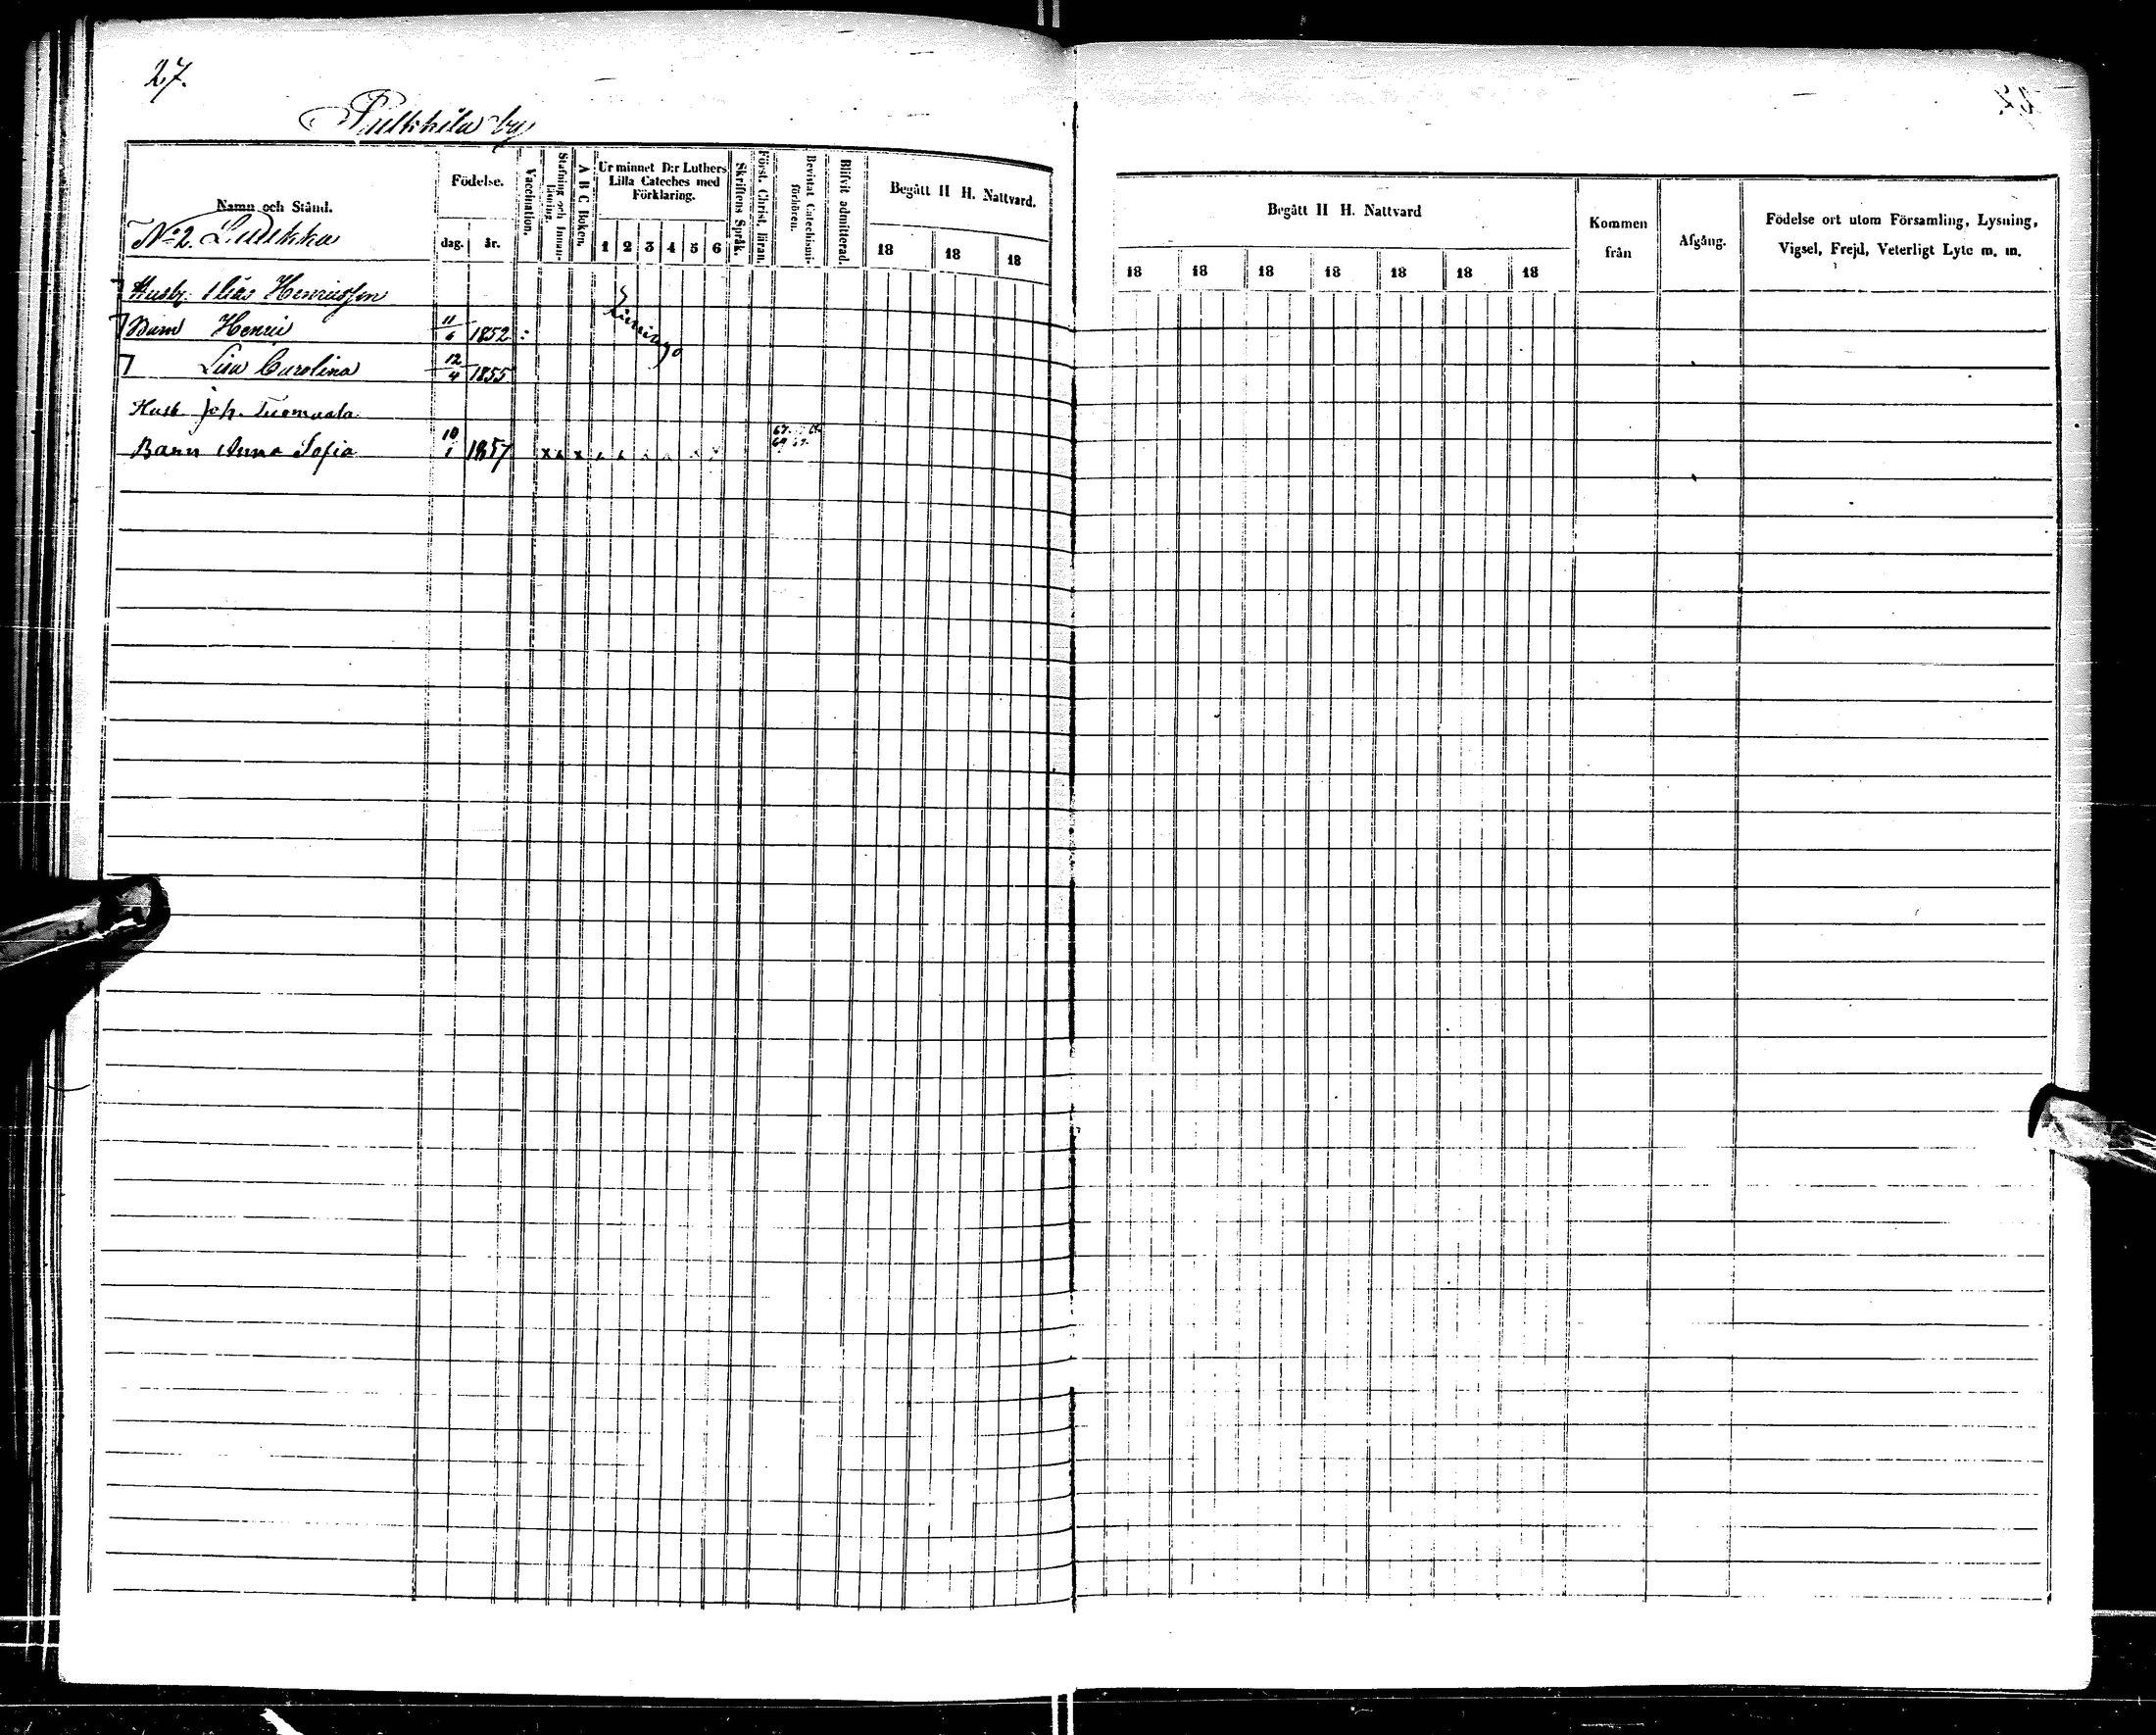 27.
Pulkkila by
Namn och Stånd.
Födelse.
dag. år.
Vaccination.
Stafning och Innanläsning.
A B C Boken.
Ur minnet D:r Luthers Lilla Cateches med Förklaring.
1 2 3 4 5 6
Skriftens Språk.
Först. Christ. läran.
Bevistat Catechismiförhören.
Blifvit admitterad.
Begått H H. Nattvard.
18 18 18
Begått H H. Nattvard
18 18 18 18 18 18 18
Kommen från
Afgång.
Födelse ort utom Församling, Lysning, Vigsel, Frejd, Veterligt Lyte m. m.
No 2.
Husb. Elias Henriksson
Barn Henric 11/6 1852
Lisa Carolina 12/4 1855
Husb Joh. Tuomaala
Barn Anna Sofia 10/1 1857 x x x x x x x x x